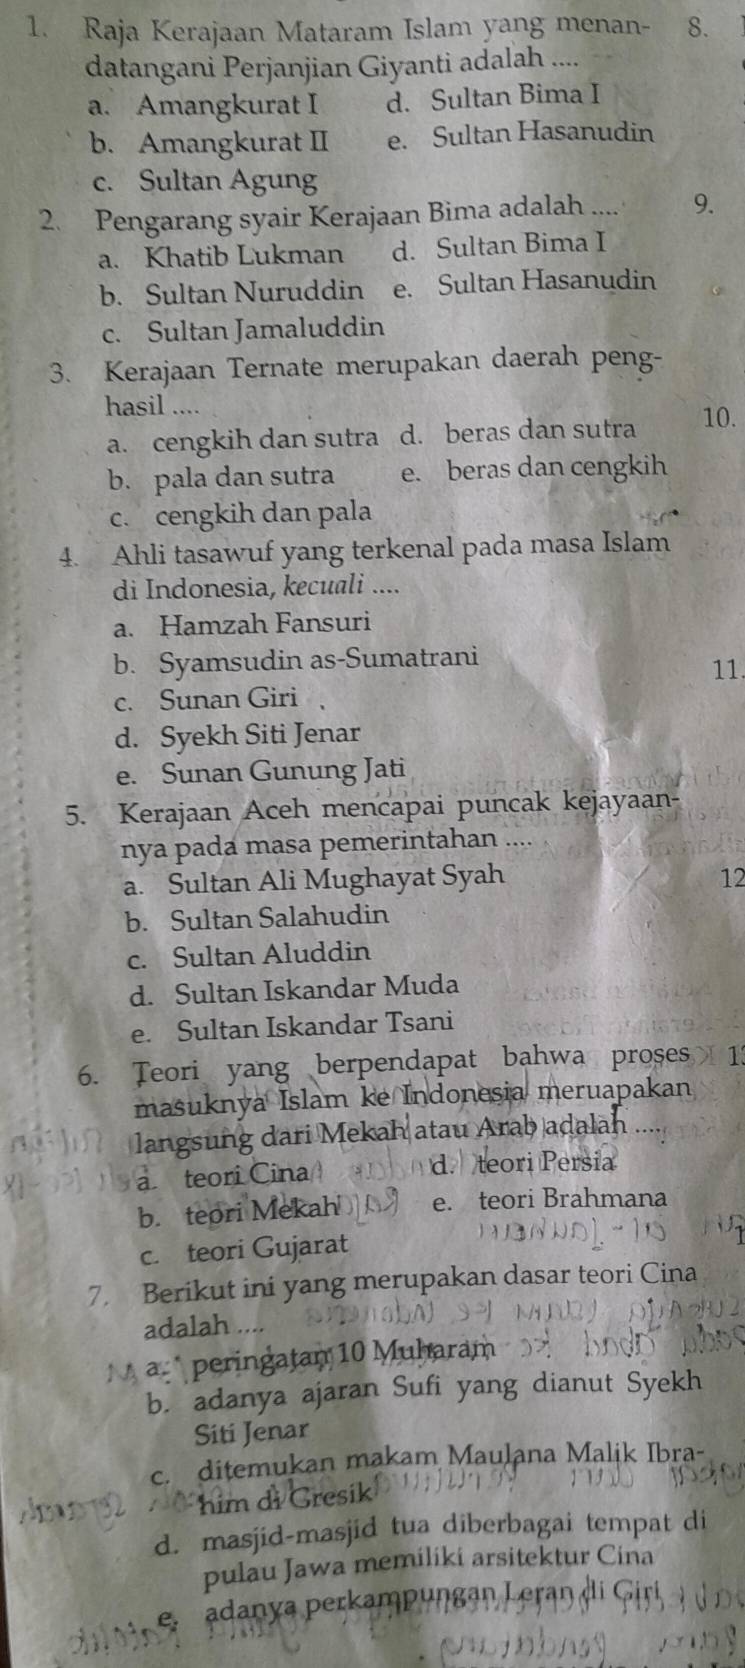 1. Raja Kerajaan Mataram Islam yang menan-
datangani Perjanjian Giyanti adalah ....
a. Amangkurat I d. Sultan Bima I
b. Amangkurat II e. Sultan Hasanudin
c. Sultan Agung
2. Pengarang syair Kerajaan Bima adalah ....
a. Khatib Lukman d. Sultan Bima I
b. Sultan Nuruddin e. Sultan Hasanudin
c. Sultan Jamaluddin
3. Kerajaan Ternate merupakan daerah peng-
hasil ....
a. cengkih dan sutra d. beras dan sutra
b. pala dan sutra e. beras dan cengkih
c. cengkih dan pala
4. Ahli tasawuf yang terkenal pada masa Islam
di Indonesia, kecuali ....
a. Hamzah Fansuri
b. Syamsudin as-Sumatrani
c. Sunan Giri
d. Syekh Siti Jenar
e. Sunan Gunung Jati
5. Kerajaan Aceh mencapai puncak kejayaan-
nya pada masa pemerintahan ....
a. Sultan Ali Mughayat Syah
b. Sultan Salahudin
c. Sultan Aluddin
d. Sultan Iskandar Muda
e. Sultan Iskandar Tsani
6. Teori yang berpendapat bahwa proses
masuknya Islam ke Indonesia meruapakan
langsung dari Mekah atau Arab adalah ....
a. teori Cina d. teori Persia
b. teori Mekah e. teori Brahmana
c. teori Gujarat
7. Berikut ini yang merupakan dasar teori Cina
adalah ....
a. peringatan 10 Muharam
b. adanya ajaran Sufi yang dianut Syekh
Siti Jenar
c. ditemukan makam Maulana Malik Ibra-
him di Gresik
d. masjid-masjid tua diberbagai tempat di
pulau Jawa memiliki arsitektur Cina
e. adanya perkampungan Leran di Giri
8.
9.
10.
11.
12